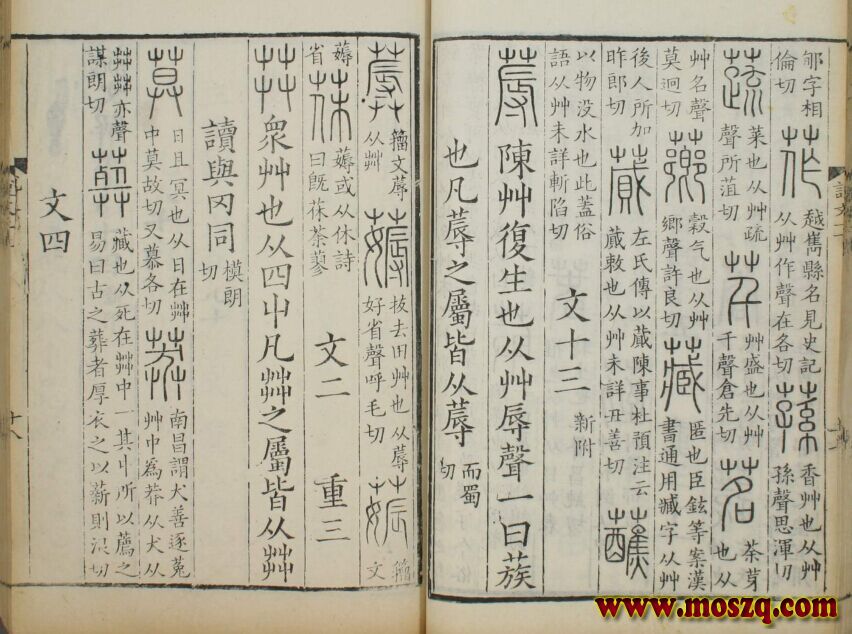 郇字相倫切 莋 越嶲縣名見史記从艸作聲在各切 蓀 香艸也从艸孫聲思渾切
蔬 菜也从艸疏聲所菹切 芊 艸盛也从艸千聲倉先切 茗 荼芽也从
艸名聲莫迥切 薌 穀气也从艸鄉聲許良切 藏 匿也臣鉉等案漢書通用臧字从艸
後人所加昨郎切 蕆 左氏傳以蕆陳事杜預注云蕆敕也从艸未詳丑善切 蘸
以物没水也此蓋俗語从艸未詳斬陷切 文十三 新附
蓐 陳艸復生也从艸辱聲一曰蔟
也凡蓐之屬皆从蓐 而蜀切
𦾣 籀文蓐从茻 薅 拔去田艸也从蓐好省聲呼毛切 𦵄 籀文
薅省 茠 薅或从休詩曰既茠荼蓼 文二 重三
茻 眾艸也从四屮凡茻之屬皆从茻
讀與冈同 模朗切
莫 日且冥也从日在茻中莫故切又慕各切 莽 南昌謂犬善逐菟艸中為莽从犬从
茻茻亦聲謀朗切 葬 藏也从死在茻中一其中所以薦之易曰古之葬者厚衣之以薪則浪切
文四
十八
www.moszq.com